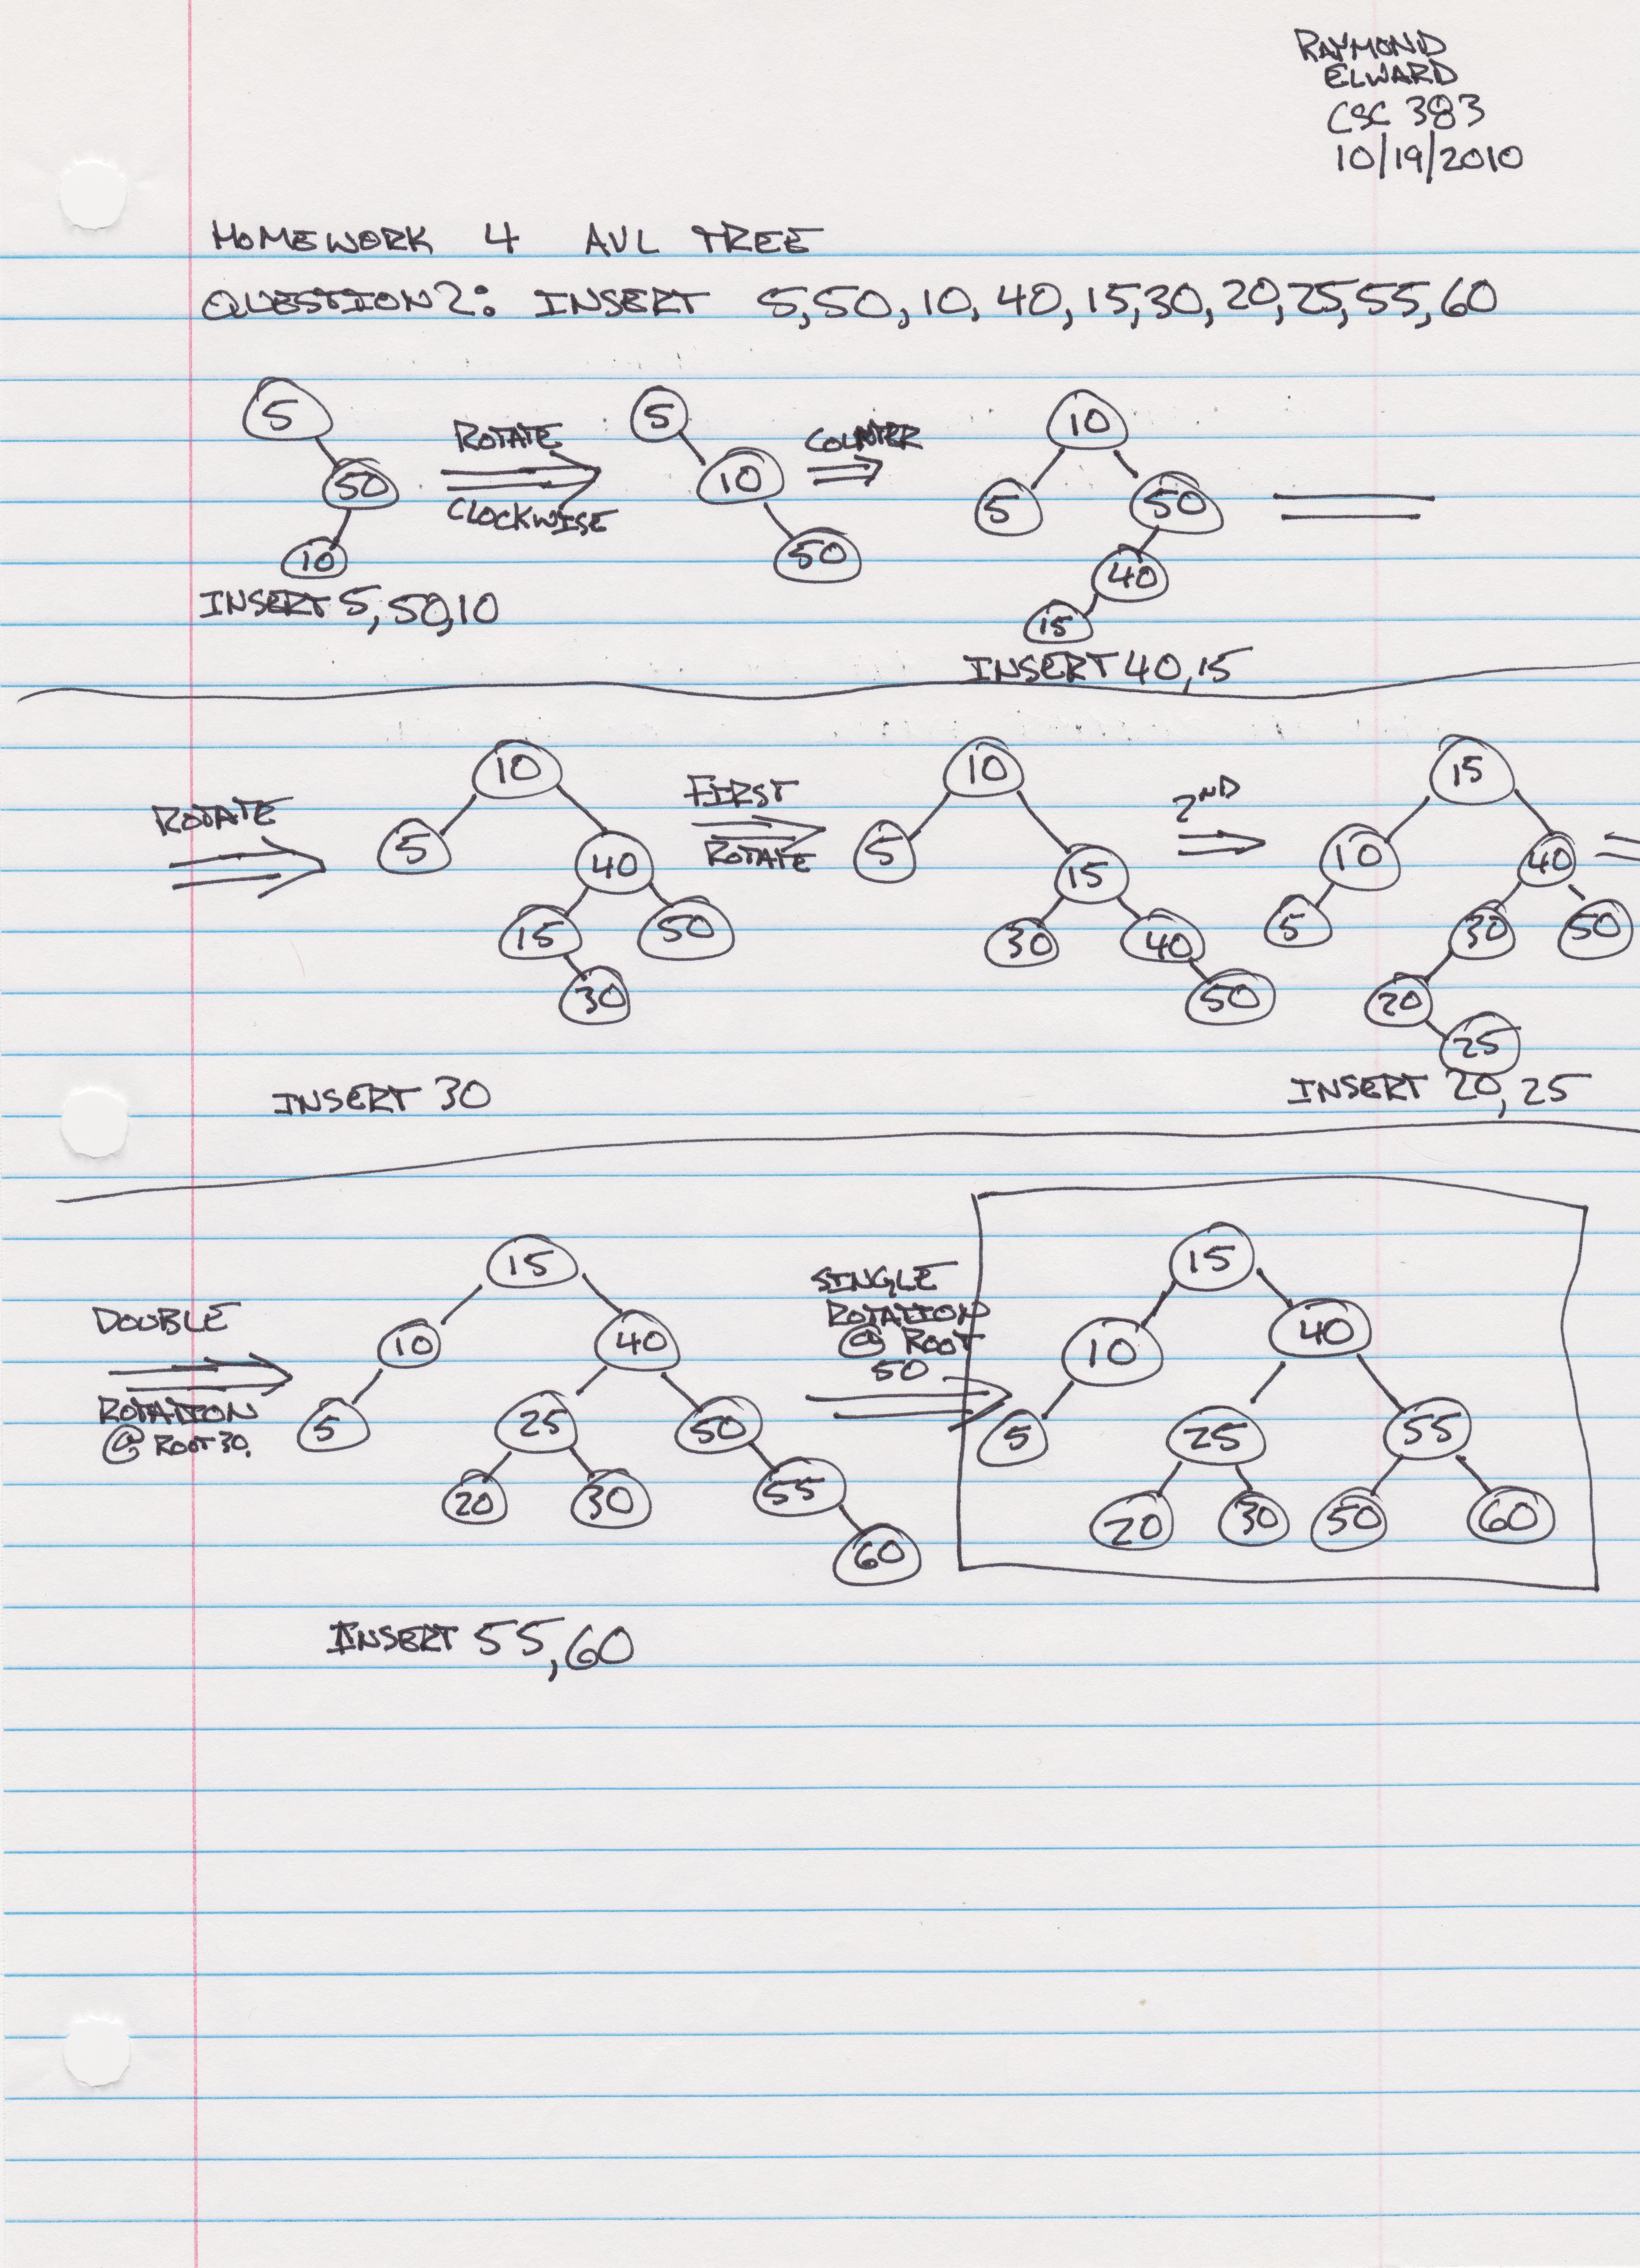 RAYMOND
ELWARD
CSC 383
10/19/2010
HOMEWORK 4 AVL TREE
QUESTION 2: INSERT 5,50,10,40,15,30,20,25,55,60
5
50
10
INSERT 5,50,10
ROTATE
CLOCKWISE
5
10
50
COUNTER
10
5 50
40
15
INSERT 40,15
ROTATE
10
5 40
15 50
30
INSERT 30
FIRST
ROTATE
10
5 15
30 40
50
2ND
15
10 40
5 30 50
20
25
INSERT 20,25
DOUBLE
ROTATION
@ ROOT 30.
15
10 40
5 25 50
20 30 55
60
INSERT 55,60
SINGLE
ROTATION
@ ROOT
50
15
10 40
5 25 55
20 30 50 60